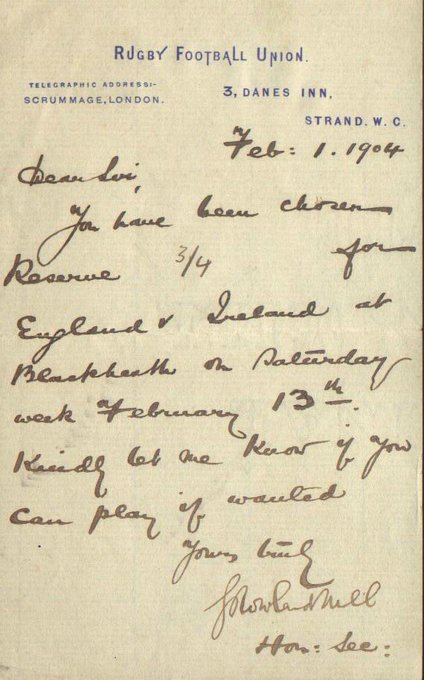 RUGBY FOOTBALL UNION.
TELEGRAPHIC ADDRESS:-
SCRUMMAGE, LONDON.
3, DANES INN,
STRAND. W. C.
Feb: 1. 1904
Dear Sir,
You have been chosen
Reserve 3/4 for
England v Ireland at
Blackheath on Saturday
week February 13th.
Kindly let me know if you
can play if wanted
Yours truly
G Rowland Hill
Hon: Sec: